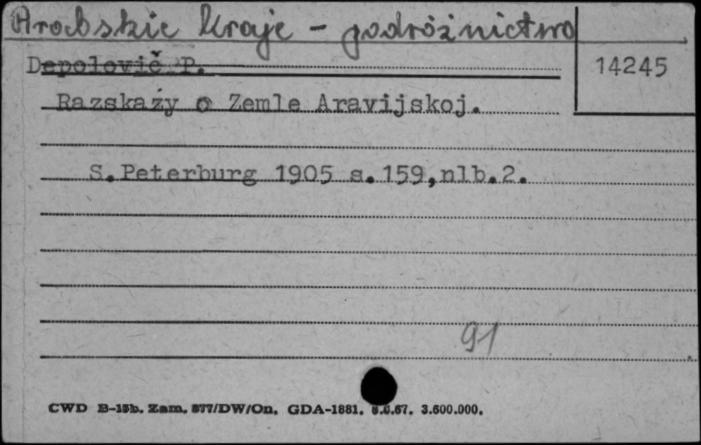 Arabskie Kraje - podróżnictwo
14245
Depolovič P.
Razskaży o Zemle Aravijskoj.
S.Peterburg 1905 s.159,nlb.2.
91
CWD B-15b. Zam. 877/DW/On. GDA-1881. 67. 3.600.000.